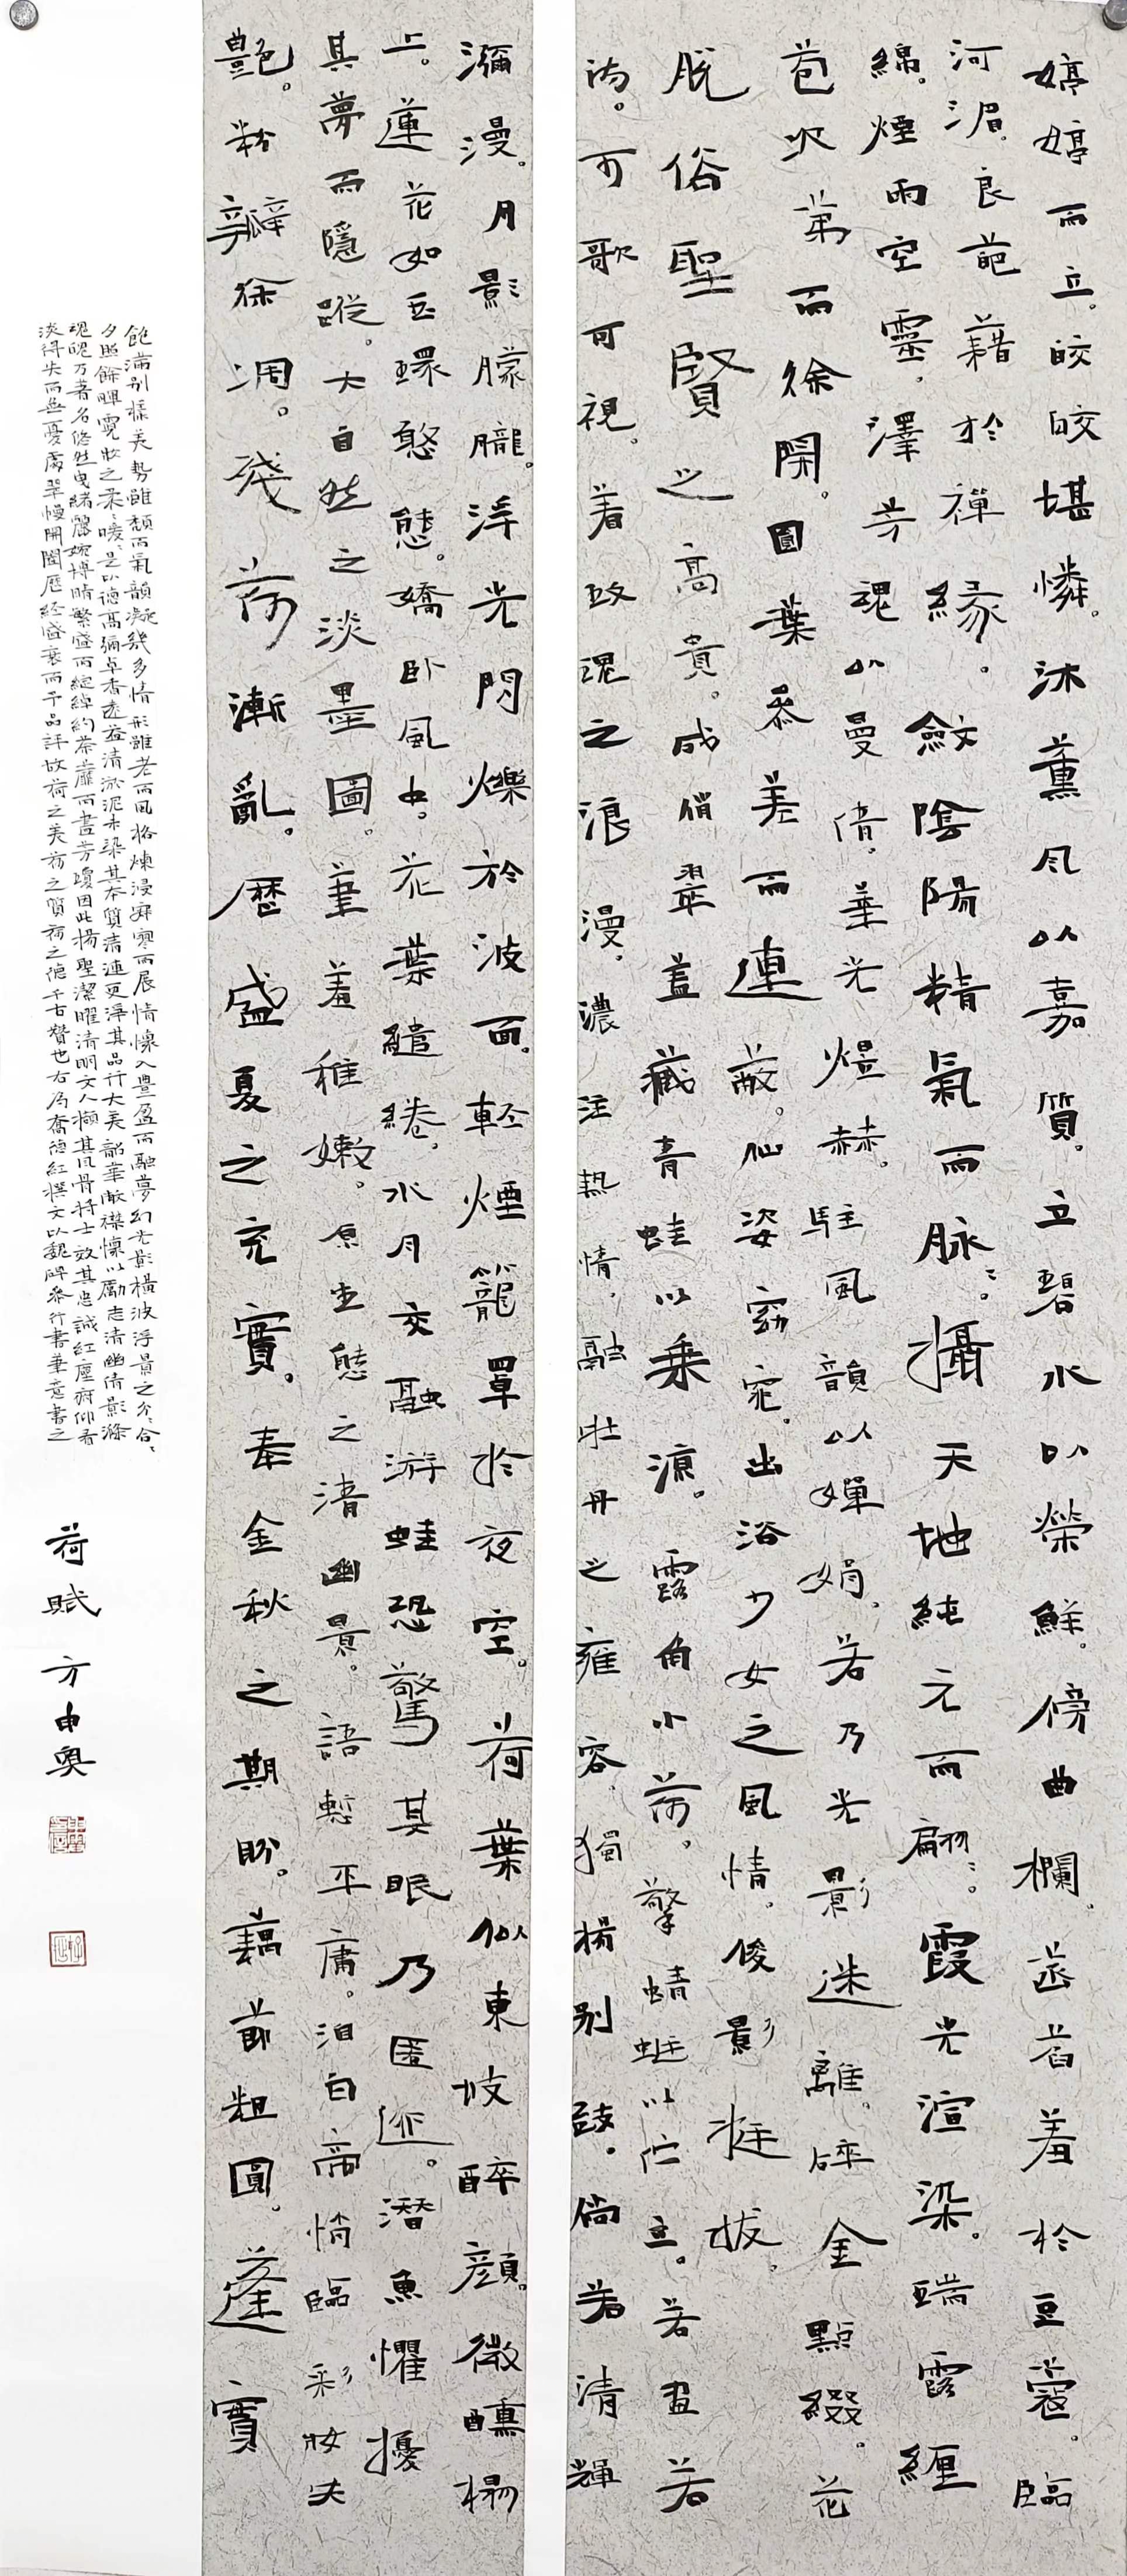 婷婷而立。皎皎堪憐。沐薰风以嘉質。立碧水以榮鮮。傍曲欄。菡萏羞於豆蔻。臨
河湄。良葩藉於禪緣。斂陰陽精氣而脉脉。攝天地純元而翩翩。霞光渲染。瑞露纏
綿。煙雨空靈。澤芳魂以曼倩。華光熅赫。駐風韻以嬋娟。若乃光影迷離。碎金點綴。花
苞次第而徐開。圓葉参差而連蔽。仙姿窈窕。出浴少女之風情。俊影挺拔。
脱俗聖賢之高貴。成俏翠盖藏青蛙以乘涼。露角小荷。擎蜻蜓以伫立。若画若
詩。可歌可視。着玫瑰之浪漫。濃注热情。融牡丹之雍容。獨揚别致。倘若清輝
瀰漫。月影朦朧。浮光閃爍於波面。輕煙籠罩於夜空。荷葉似東坡醉顔。微醺榻
上。蓮花如玉環憨態。嬌卧風中。花葉繾綣。水月交融。游蛙恐驚其眠乃匿迹。潜魚懼擾
其夢而隱蹤。大自然之淡墨圖。筆羞稚嫩。原生態之清幽景。語慙平庸。洎白帝悄臨。彩妝失
艷。粉瓣徐凋。殘荷漸亂。歷盛夏之充實。奉金秋之期盼。藕節粗圓。蓬實
飽滿别樣美勢雖頽而氣韻凝幾多情形雖老而風格煉浸寂寥而展情懷入豐盈而融夢幻光影橫波浮景之合合
夕照餘暉霓妝之柔柔暖暖是以德高彌卓香遠益清淤泥未染其本質清漣更淨其品行大美韶華敞襟懷以勵志清幽倩影滌
魂魄万著名悠然曳緒麗婉博晴繁盛而綻綽約荼蘼而盡芳瓊因此揚聖潔曜清明文人擷其風骨将士效其忠誠紅塵俯仰看
淡得失而無憂慮翠幔開闔歷经盛衰而予品評故荷之美荷之質荷之德千古贊也右为喬德紅撰文以魏碑参行書筆意書之
荷賦 方申奥